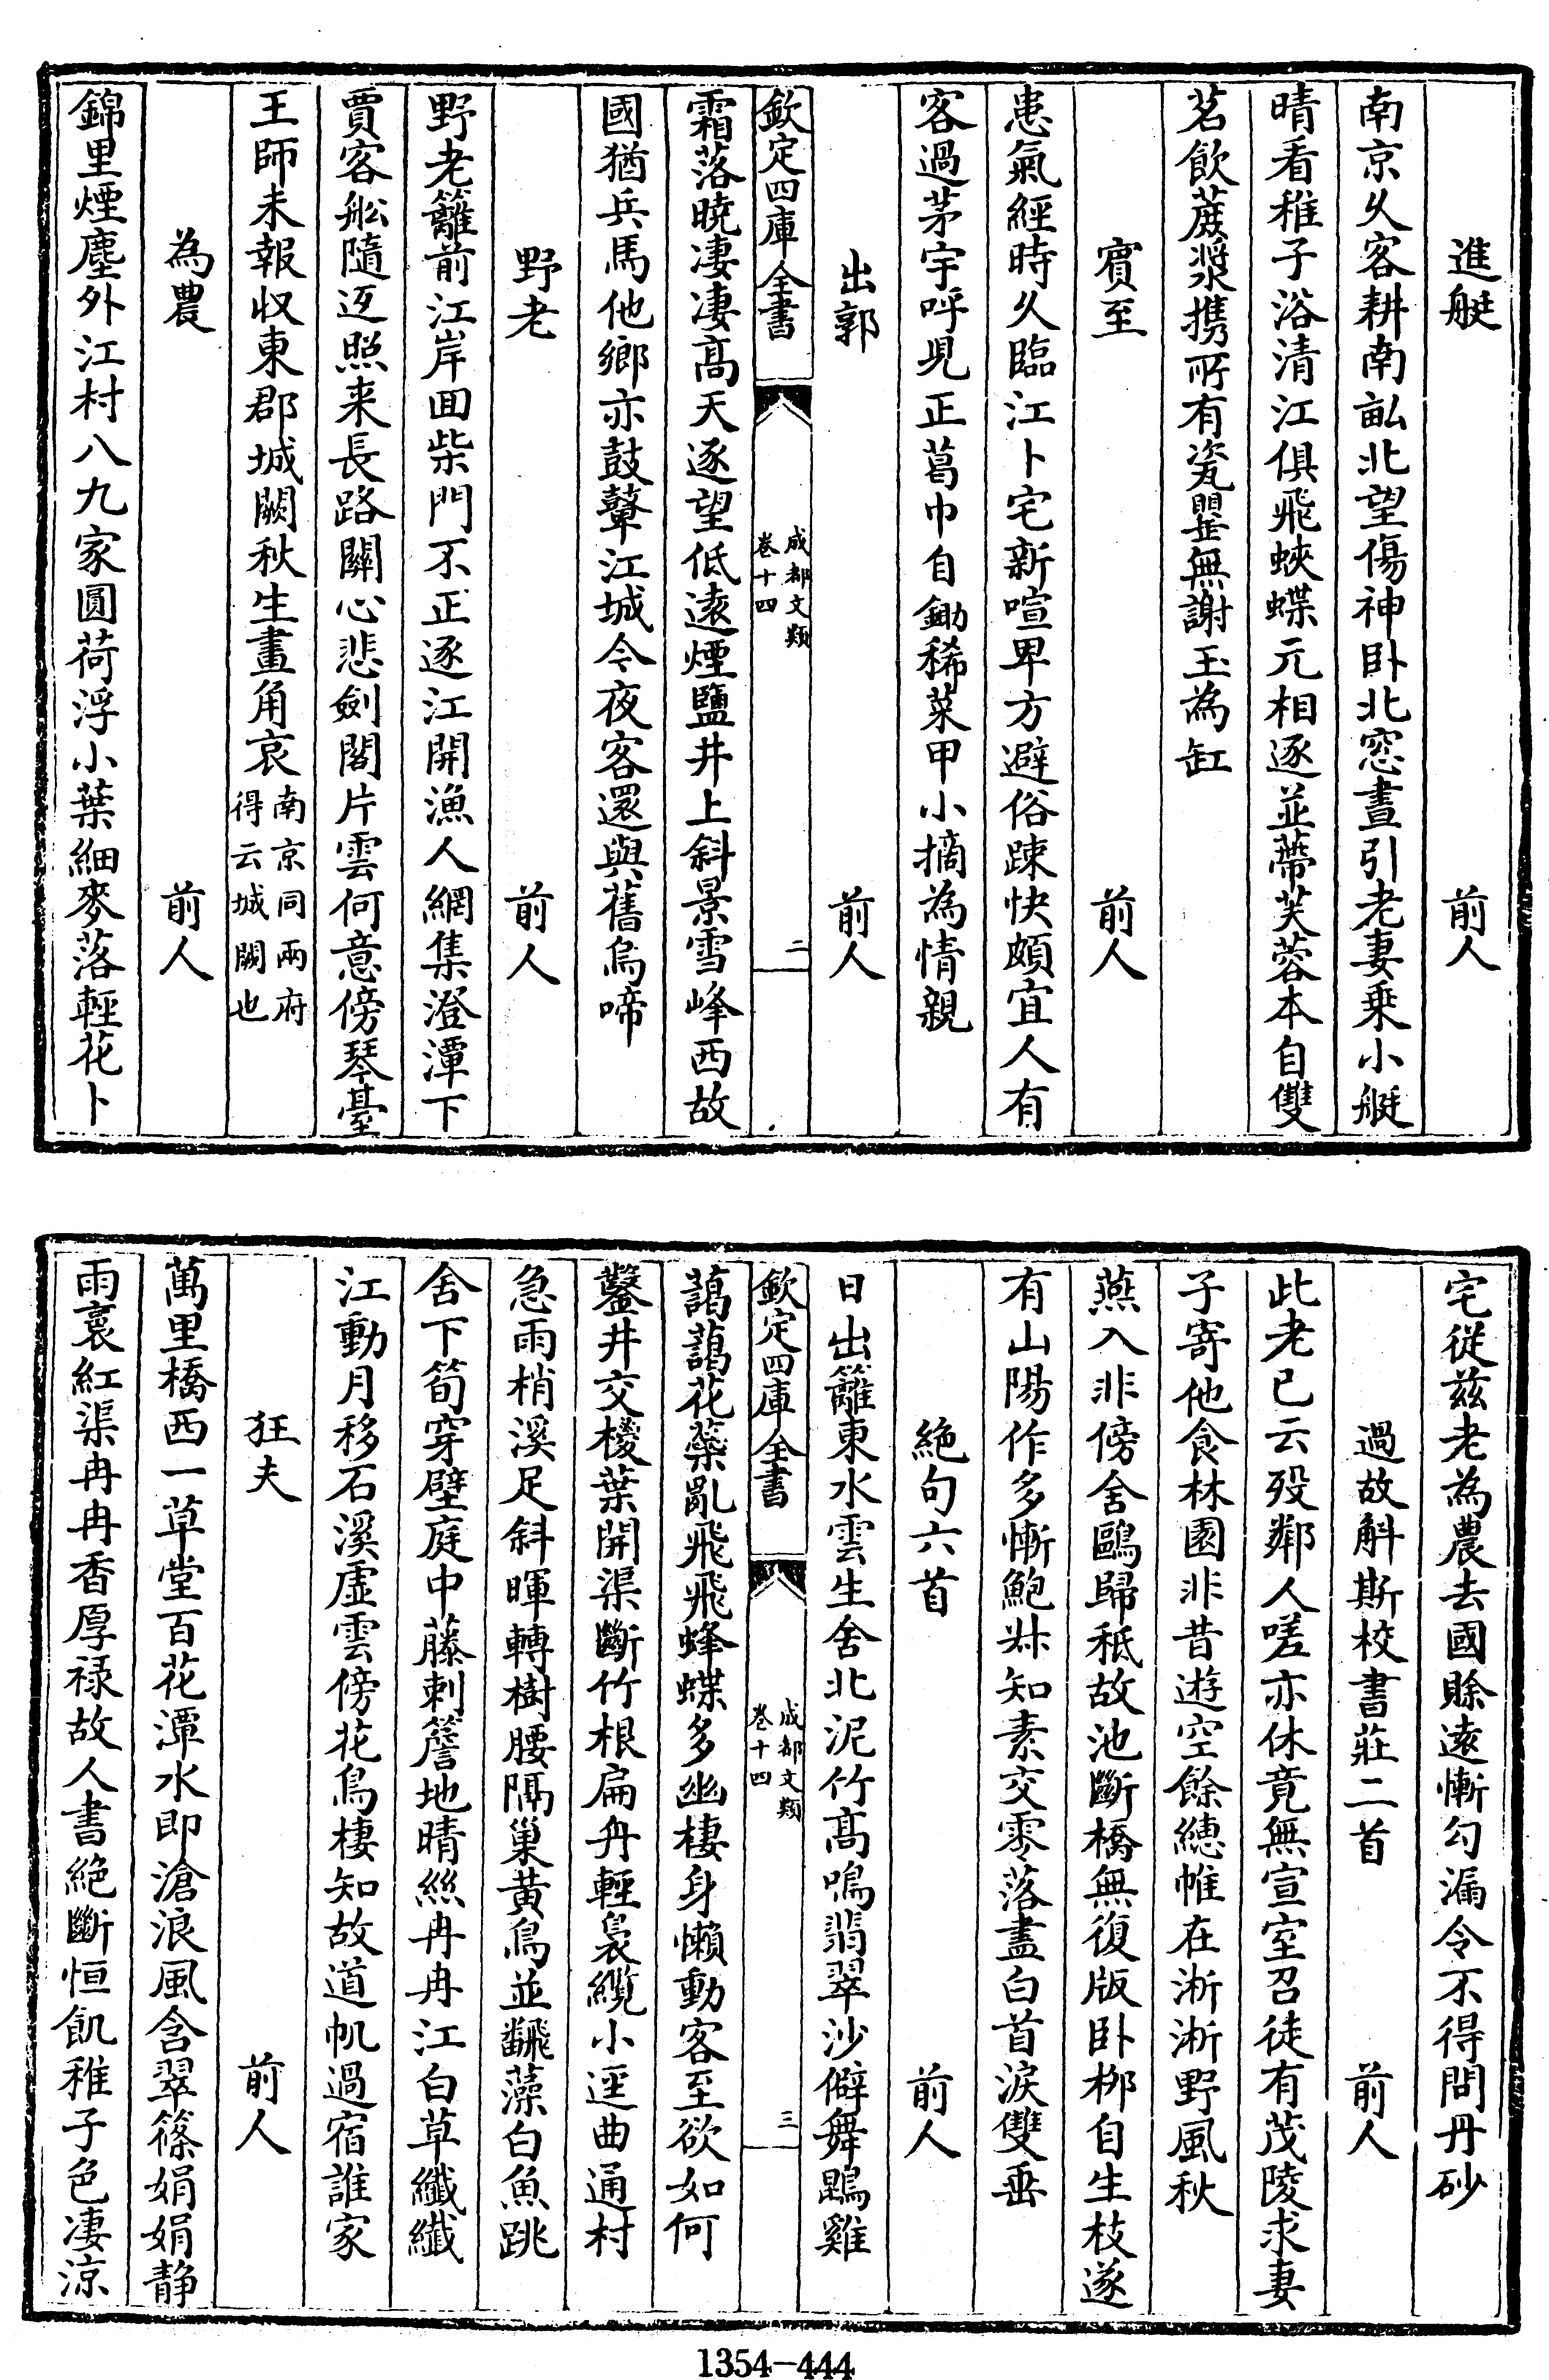 進艇　前人
南京乆客耕南畆北望傷神卧北窓晝引老妻乗小艇
晴看稚子浴清江俱飛蛺蝶元相逐並蔕芙蓉本自雙
茗飲蔗漿携所有瓷罌無謝玉為缸
賓至　前人
患氣經時乆臨江卜宅新喧卑方避俗踈快頗宜人有
客過茅宇呼児正葛巾自鋤稀菜甲小摘為情親
出郭　前人
欽定四庫全書　成都文類　卷十四　二
霜落曉凄凄髙天逐望低逺煙鹽井上斜景雪峰西故
國猶兵馬他鄉亦鼓鼙江城今夜客還與舊烏啼
野老　前人
野老籬前江岸囬柴門不正逐江開漁人網集澄潭下
賈客舩隨返照来長路關心悲劍閣片雲何意傍琴臺
王師未報収東郡城闕秋生畫角哀南京同兩府得云城闕也
為農　前人
錦里煙塵外江村八九家圓荷浮小葉細麥落輕花卜
宅從兹老為農去國賒逺慚勾漏令不得問丹砂
過故斛斯校書莊二首　前人
此老已云歿鄰人嗟亦休竟無宣室召徒有茂陵求妻
子寄他食林園非昔遊空餘繐帷在淅淅野風秋
燕入非傍舍鷗歸秪故池斷橋無復版卧栁自生枝遂
有山陽作多慚鮑叔知素交零落盡白首淚雙垂
絶句六首　前人
日出籬東水雲生舍北泥竹髙鳴翡翠沙僻舞鵾雞
欽定四庫全書　成都文類　卷十四　三
藹藹花蘂亂飛飛蜂蝶多幽棲身懶動客至欲如何
鑿井交椶葉開渠斷竹根扁舟輕裊纜小逕曲通村
急雨梢溪足斜暉轉樹腰隔巢黃鳥並飜藻白魚跳
舍下筍穿壁庭中藤刺簷地晴絲冉冉江白草纖纖
江動月移石溪虛雲傍花鳥棲知故道帆過宿誰家
狂夫　前人
萬里橋西一草堂百花潭水即滄浪風含翠篠娟娟静
雨裛紅渠冉冉香厚禄故人書絶斷恒飢稚子色凄涼
1354-444